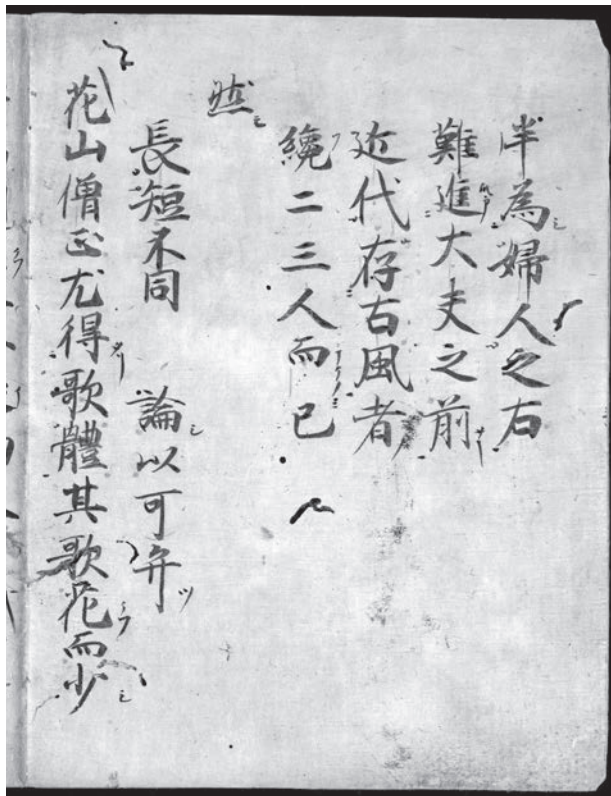 半為婦人之右
難進大夫之前
近代存古風者
纔二三人而已
然
長短不同 論以可弁
花山僧正尤得歌體其歌花而少